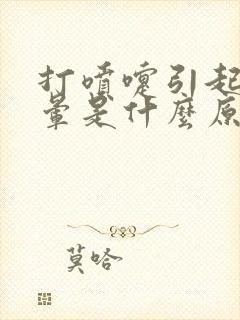 打噴嚏引起
暈是什麼原
莫哈